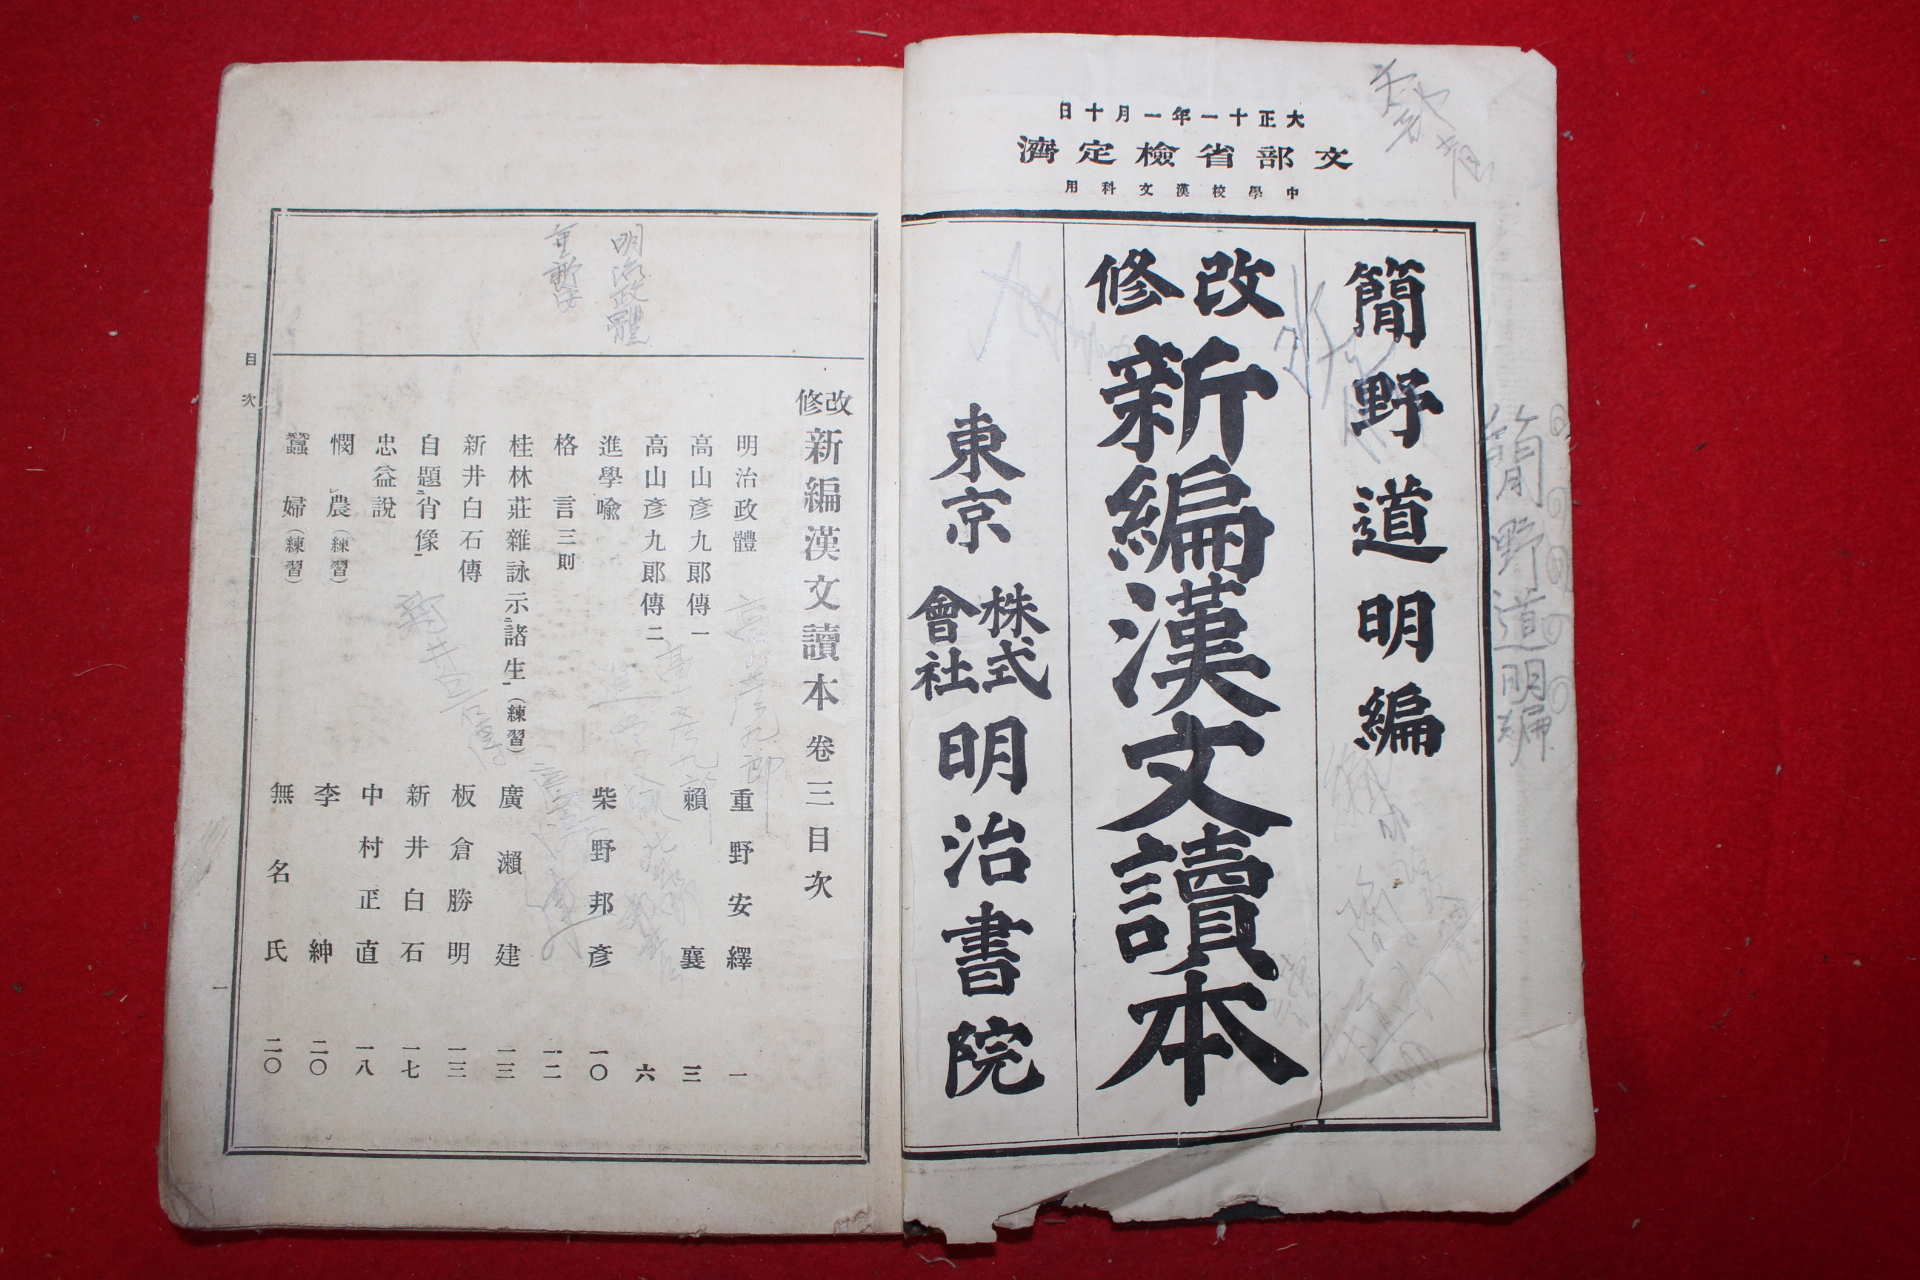 大正十一年一月十日
文部省檢定濟
中學校漢文科用
簡野道明編
改修
新編漢文讀本
東京
株式會社
明治書院
簡野道明編
改修 新編漢文讀本 卷三目次
明治政體 重野安繹 一
高山彥九郞傳一 賴襄 三
高山彥九郞傳二 六
進學喩 柴野邦彥 一〇
格言三則 一二
桂林莊雜詠示諸生(練習) 廣瀨建 一三
新井白石傳 板倉勝明 一三
自題肖像 新井白石 一七
忠益說 中村正直 一八
憫農(練習) 李紳 二〇
蠶婦(練習) 無名氏 二〇
目次
一
明治政體